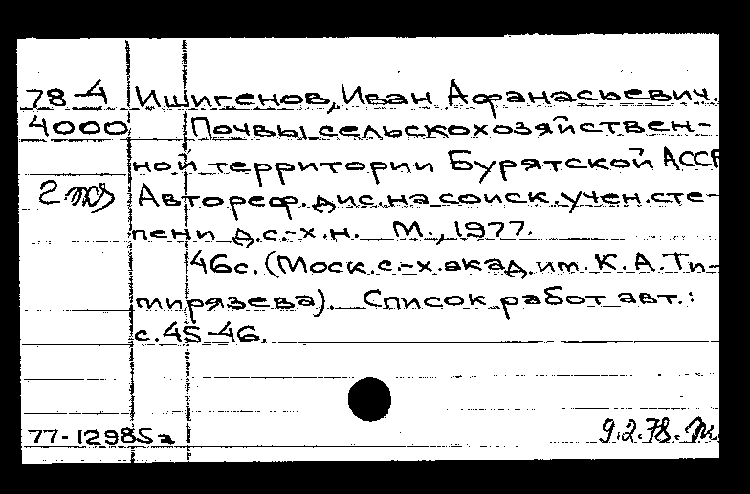 78-4 Ишигенов, Иван Афанасьевич.
4000 Почвы сельскохозяйствен-
ной территории Бурятской АССР
2 Автореф. дис. на соиск. учен. сте-
пени д.с.-х.н. М., 1977.
46с. (Моск. с.-х. акад. им. К. А. Ти-
мирязева). Список работ авт.:
с. 45-46.
77-12985а 9.2.78.